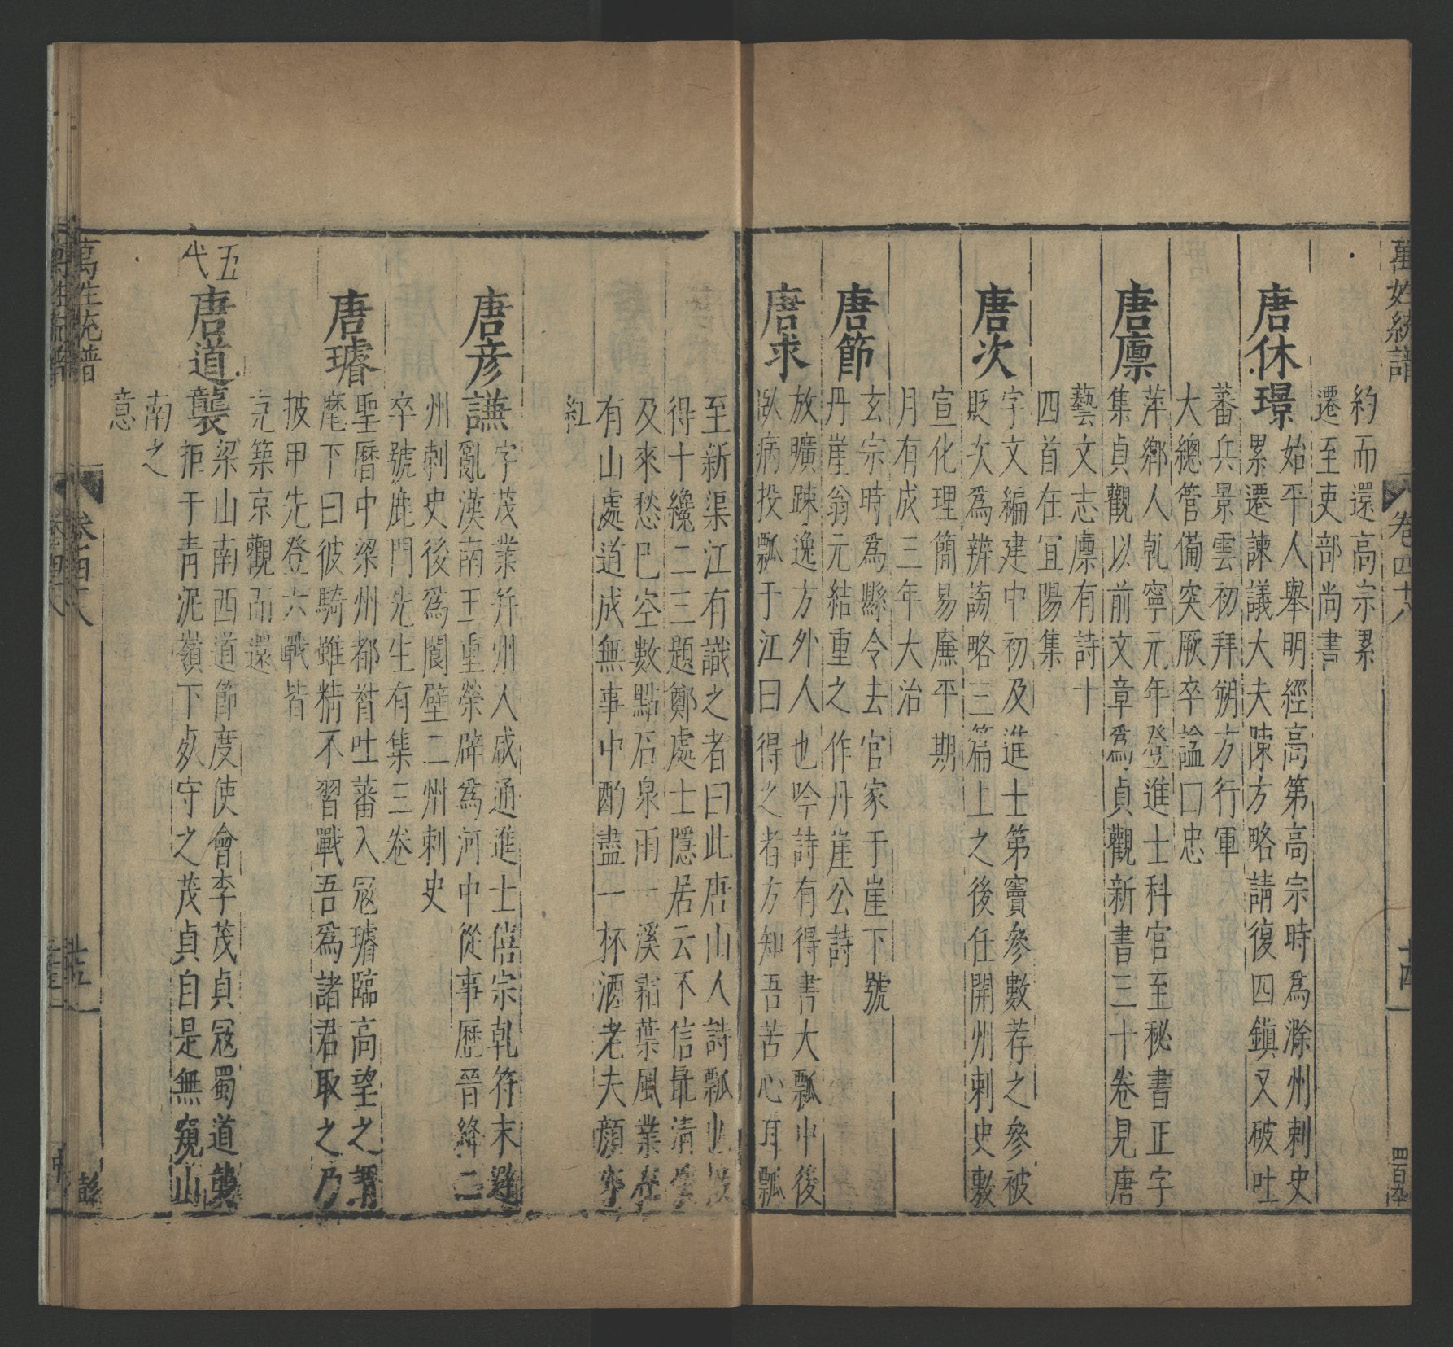 萬姓統譜
卷四十八
十四
約而還高宗累
遷至吏部尚書
唐休璟
始平人舉明經高第高宗時爲滁州刺史
累遷諫議大夫陳方略請復四鎮又破吐
蕃兵景雲初拜朔方行軍
大總管備突厥卒諡曰忠
唐廪
萍鄉人乹寧元年登進士科官至秘書正字
集貞觀以前文章爲貞觀新書三十卷見唐
藝文志廪有詩十
四首在宜陽集
唐次
字文編建中初及進士第竇參數荐之參被
貶次爲辨謗略三篇上之後任開州刺史數
宣化理簡易廉平期
月有成三年大治
唐節
玄宗時爲縣令去官家于崖下號
丹崖翁元結重之作丹崖公詩
唐求
放曠踈逸方外人也吟詩有得書大瓢中後
卧病投瓢于江曰得之者方知吾苦心耳瓢
至新渠江有識之者曰此唐山人詩瓢也
得十纔二三題鄭處士隱居云不信最清
及來愁巳空數點石泉雨一溪霜葉風業在
有山處道成無事中酌盡一杯酒老夫顏亦
紅
唐彦謙
字茂業并州人咸通進士僖宗乹符末避
亂漢南王重榮辟爲河中從事歷晉絳二
州刺史後爲閬壁二州刺史
卒號鹿門先生有集三卷
唐璿
聖曆中梁州都督吐蕃入寇璿臨高望之謂
麾下曰彼騎雖精不習戰吾爲諸君取之乃
披甲先登六戰皆
克築京觀而還
五代
唐道襲
梁山南西道節度使會李茂貞寇蜀道襲
拒于青泥嶺下夾守之茂貞自是無窺山
南之
意
萬姓統譜
卷四十八